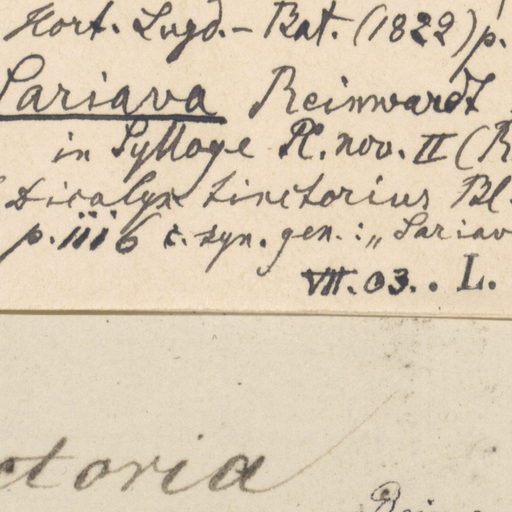 Hort. Lugd.-Bat. (1822) p.
Sariava Reinwardt
in Sylloge Pl. nov. II (R
Dicalyx tinctorius Bl.
p. 1116 c. syn. gen.: „Sariav
VII. 03.. L.
ctoria
Rein